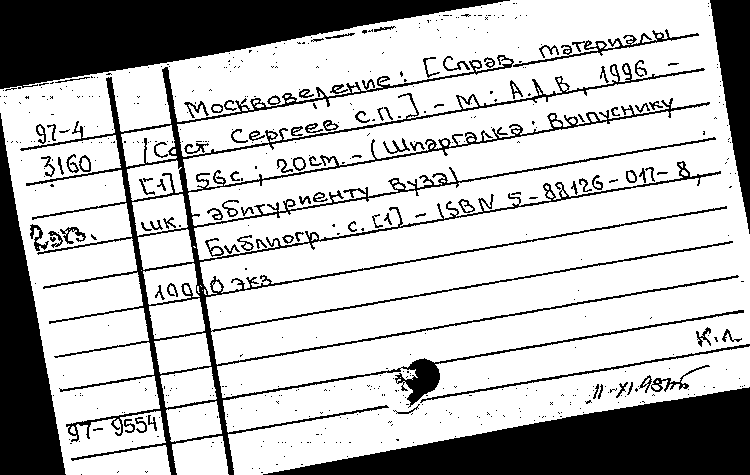 Москвоведение: [Справ. материалы
97-4
/Сост. Сергеев С.П.]. - М.: А.Д.В, 1996. -
3160
[1] 56с.; 20см. - (Шпаргалка: Выпускнику
2экз.
шк. - абитуриенту вуза)
Библиогр.: с. [1]. - ISBN 5-88126-017-8,
10000 экз
К.Л.
97-9554